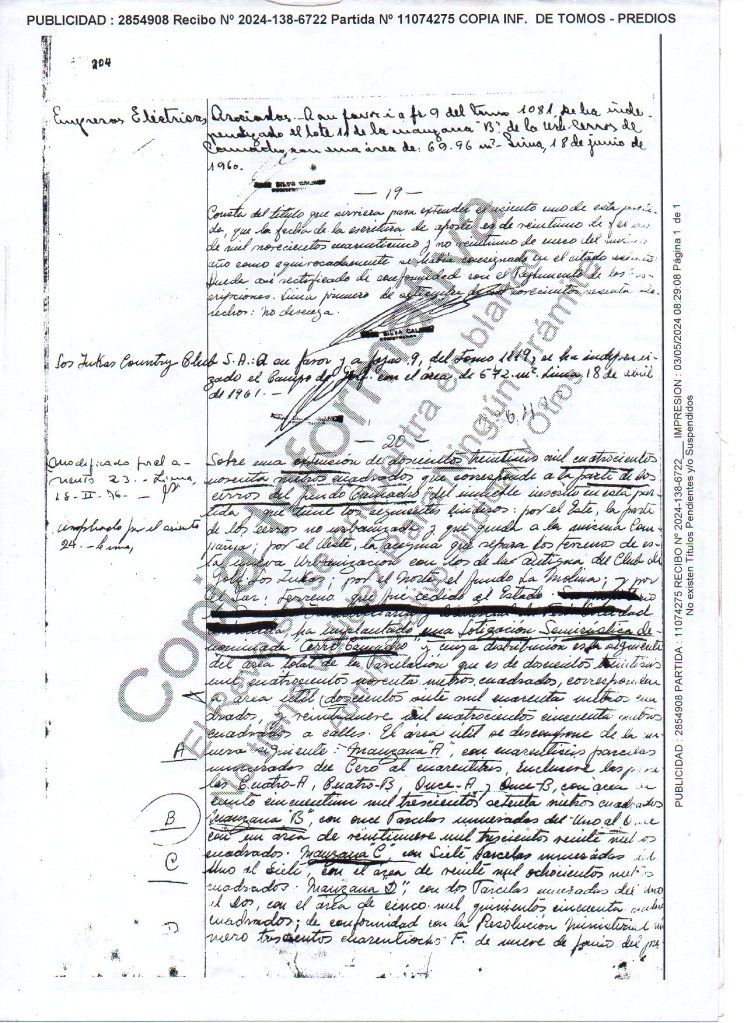 PUBLICIDAD : 2854908 Recibo Nº 2024-138-6722 Partida Nº 11074275 COPIA INF. DE TOMOS - PREDIOS
204
Empresas Eléctricas Asociadas.- A su favor i a fs 9 del Tomo 1081, se ha inde-
pendizado el lote 1 de la manzana "B" de la Urb. Cerros de
Camacho, con una área de: 69.96 m². Lima, 18 de junio de
1960.
— 19 —
Consta del título que sirviera para extender el asiento uno de esta parti-
da, que la fecha de la escritura de aporte es de veintiuno de
de mil novecientos cuarenticinco y no veintiuno de enero del mismo
año como equivocadamente se había consignado en el citado asiento.
Queda así rectificado de conformidad con el Reglamento de las Ins-
cripciones. Lima primero de de mil novecientos sesenta. De-
rechos: No devenga.
SILVA
Los Inkas Country Club S.A.: A su favor y a fojas 9, del Tomo 1119, se ha independi-
zado el Campo de Golf con el área de 672 m². Lima, 18 de abril
de 1961. —
— 20 —
Modificado por el a-
siento 23. - Lima,
18-II-76. -
Ampliado por el asiento
24. - Lima,
Sobre una extensión de doscientos treintiun mil cuatrocientos
noventa metros cuadrados que corresponde a la parte de los
cerros del fundo Camacho del inmueble inscrito en esta par-
tida, que tiene los siguientes linderos: por el Este, la parte
de los cerros no urbanizada y que queda a la misma Com-
pañía; por el Oeste, la acequia que separa los terrenos de es-
ta nueva Urbanización con los de la antigua del Club de
Golf Los Inkas; por el Norte, el fundo La Molina; y por
el Sur, terreno que fue cedido al Estado
ha implantado una Lotización Semirústica de-
nominada "Cerro Camacho" y cuya distribución es la siguiente:
del área total de la Parcelación que es de doscientos treintiun
mil cuatrocientos noventa metros cuadrados, corresponden
a área útil doscientos siete mil cuarenta metros cua-
drados, y veintinueve mil cuatrocientos cincuenta metros
cuadrados a calles. El área útil se descompone de la ma-
nera siguiente: "Manzana A", con cuarentiseis parcelas
numeradas del Cero al cuarentitres, inclusive las parce-
las Cuatro-A, Cuatro-B, Once-A, y Once-B, con área de
ciento cincuentiun mil trescientos setenta metros cuadrados.
"Manzana B", con once Parcelas numeradas del Uno al Once
con un área de veintinueve mil trescientos veinte metros
cuadrados. "Manzana C", con Siete Parcelas numeradas del
Uno al Siete, con el área de veinte mil ochocientos metros
cuadrados. "Manzana D", con dos Parcelas numeradas del Uno
al Dos, con el área de cinco mil quinientos cincuenta metros
cuadrados; de conformidad con la Resolución Ministerial nú-
mero trescientos cuarentiocho F. de nueve de junio del pre-
A
B
C
D
Copia Informativa
PUBLICIDAD : 2854908 PARTIDA : 11074275 RECIBO Nº 2024-138-6722 IMPRESION : 03/05/2024 08:29:08 Página 1 de 1
No existen Títulos Pendientes y/o Suspendidos